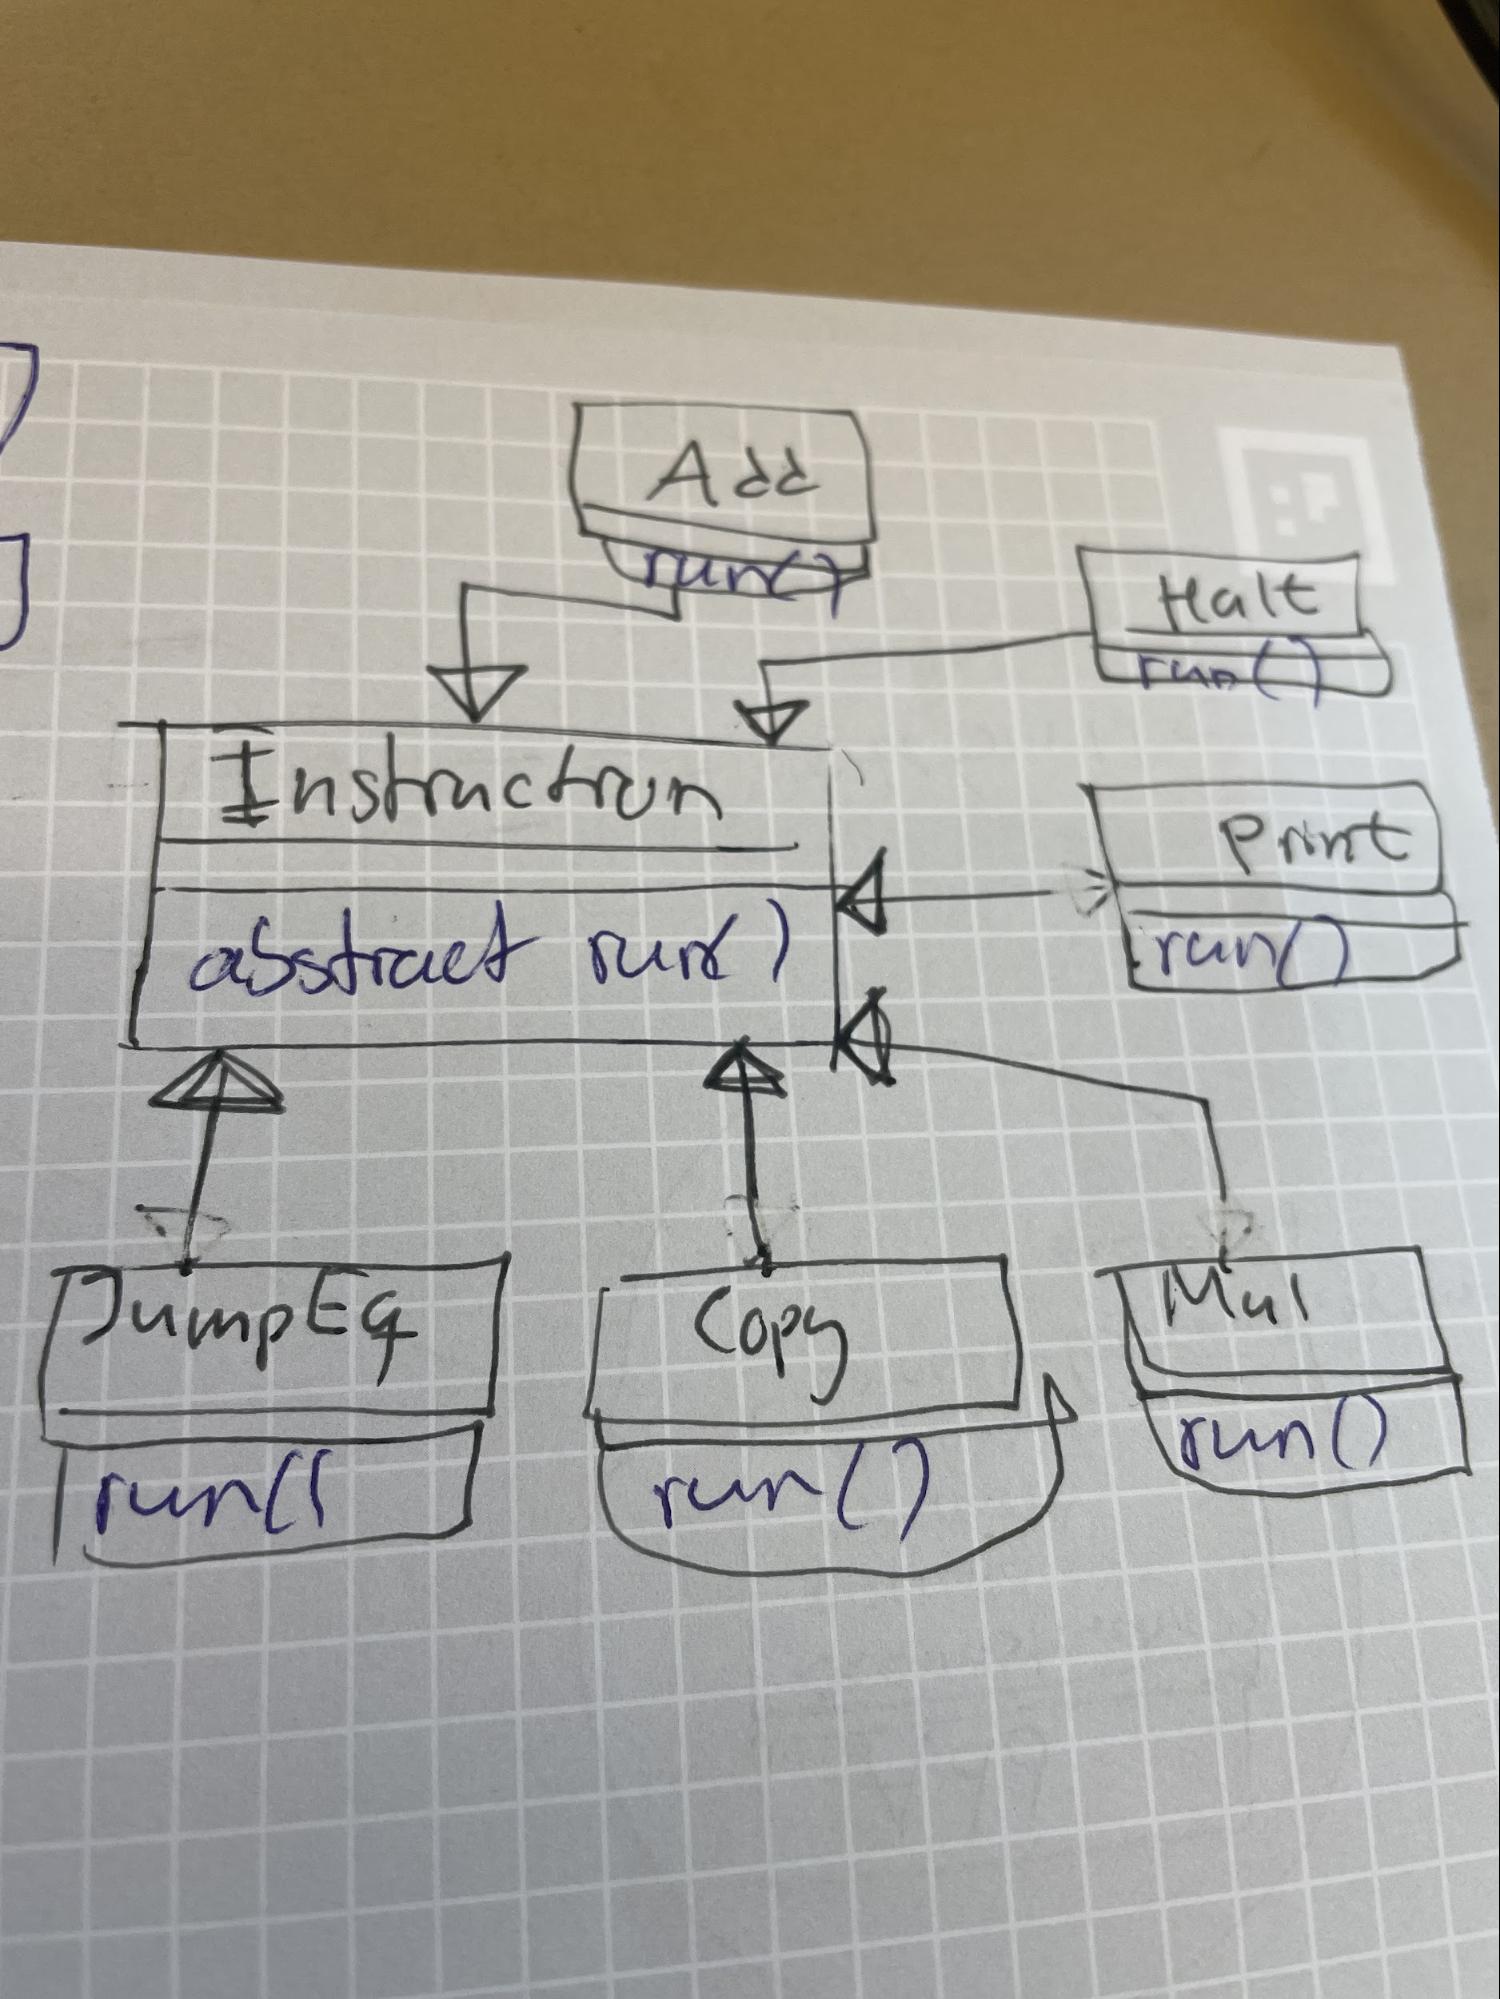 Add
run()
Halt
run()
Instruction
abstract run()
Print
run()
JumpEq
run()
Copy
run()
Mul
run()